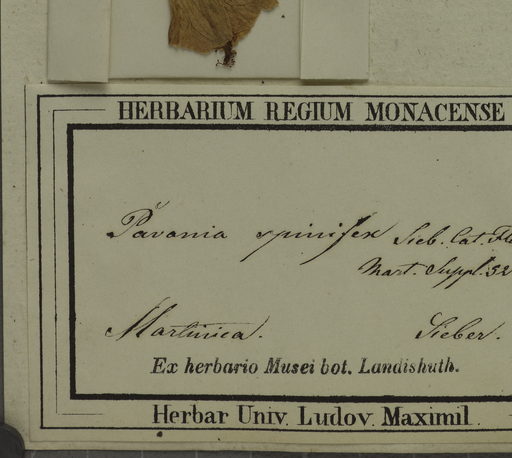 HERBARIUM REGIUM MONACENSE
Pavonia spinifex Sieb. Cat. Fl
Mart. Suppl. 32
Martinica. Sieber.
Ex herbario Musei bot. Landishuth.
Herbar Univ. Ludov. Maximil.